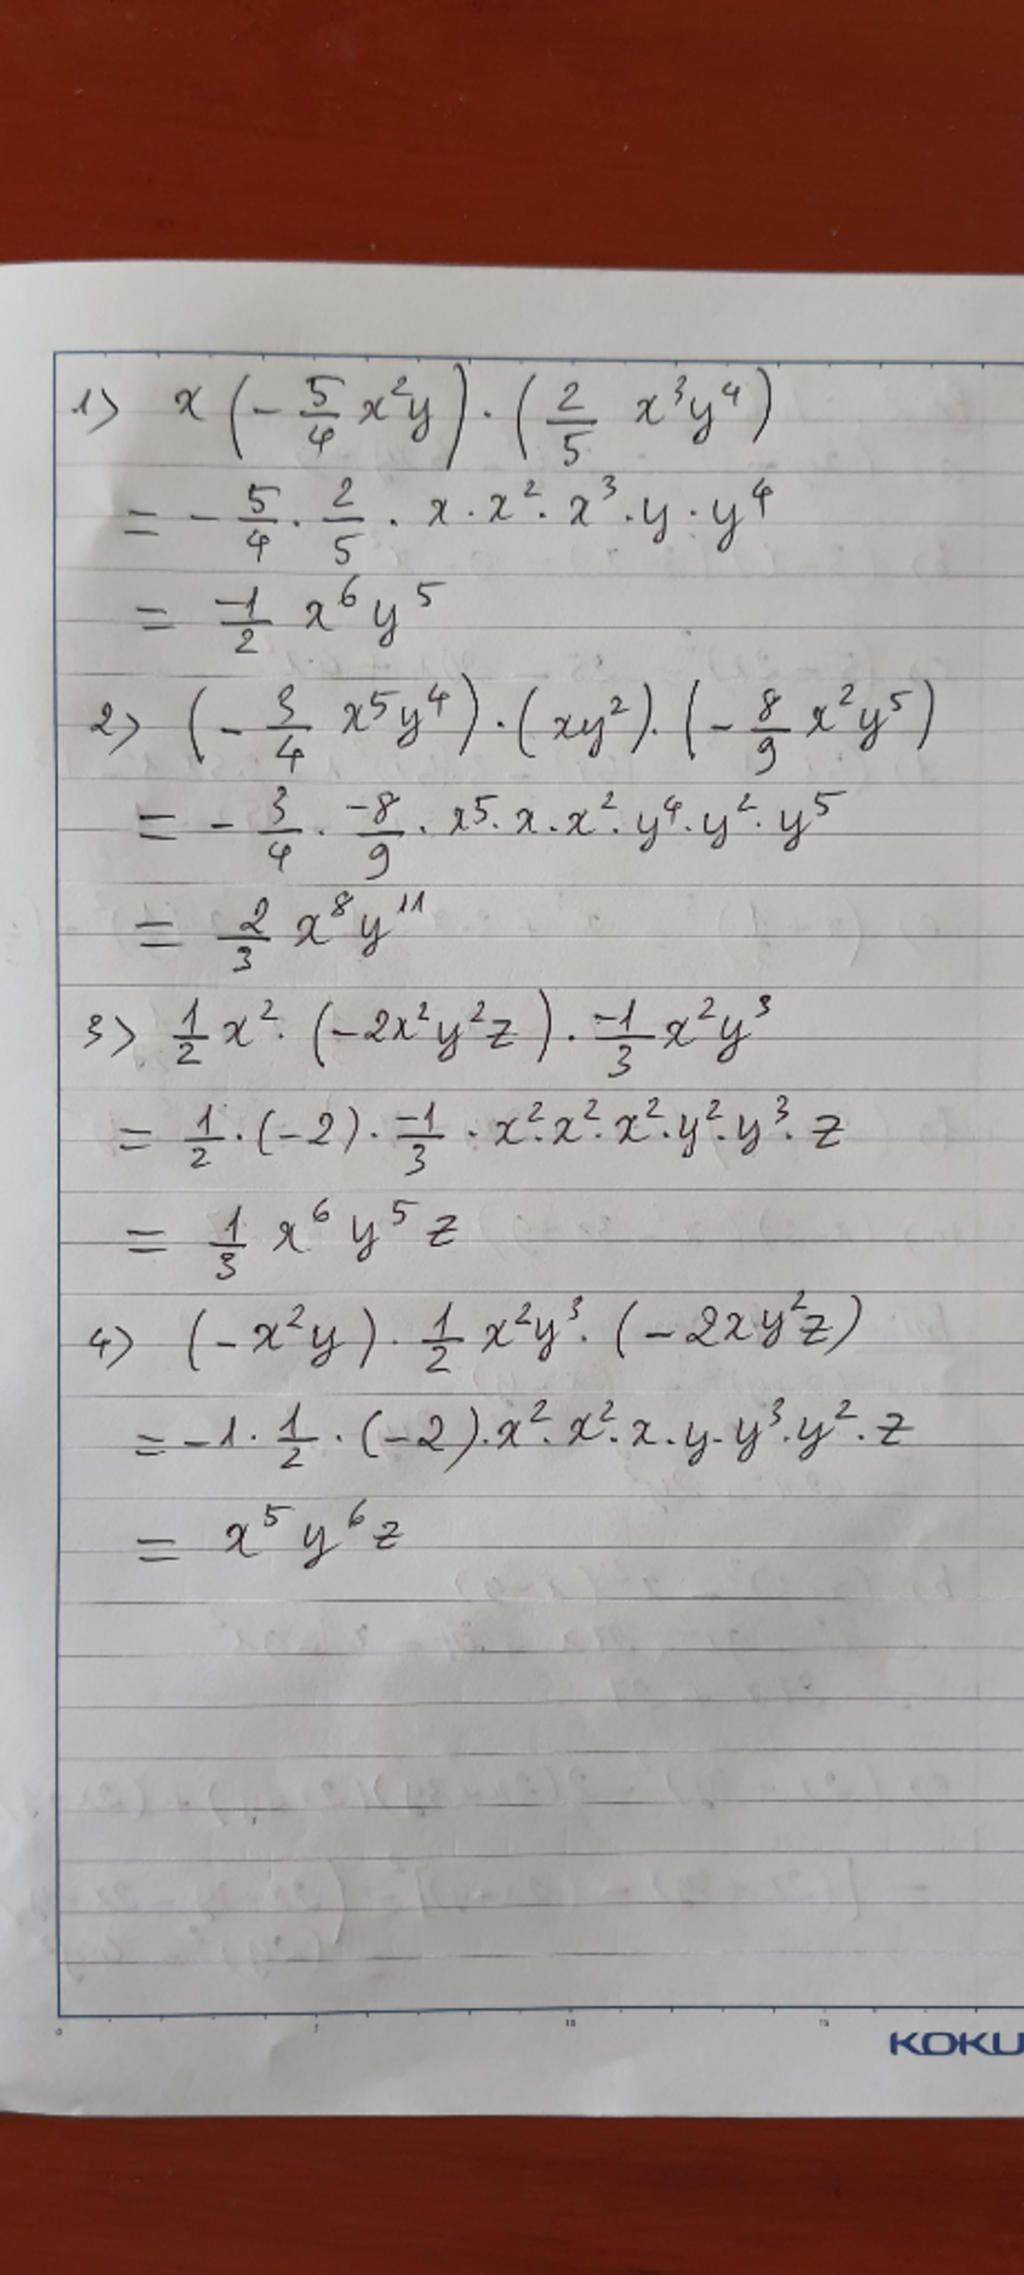 1) x (- 5/4 x²y) · (2/5 x³y⁴)
= - 5/4 · 2/5 · x · x² · x³ · y · y⁴
= -1/2 x⁶ y⁵
2) (- 3/4 x⁵y⁴) · (xy²) · (- 8/9 x²y⁵)
= - 3/4 · -8/9 · x⁵ · x · x² · y⁴ · y² · y⁵
= 2/3 x⁸ y¹¹
3) 1/2 x² · (-2x²y²z) · -1/3 x²y³
= 1/2 · (-2) · -1/3 · x² · x² · x² · y² · y³ · z
= 1/3 x⁶ y⁵ z
4) (-x²y) · 1/2 x²y³ · (-2xy²z)
= -1 · 1/2 · (-2) · x² · x² · x · y · y³ · y² · z
= x⁵ y⁶ z
KOKU